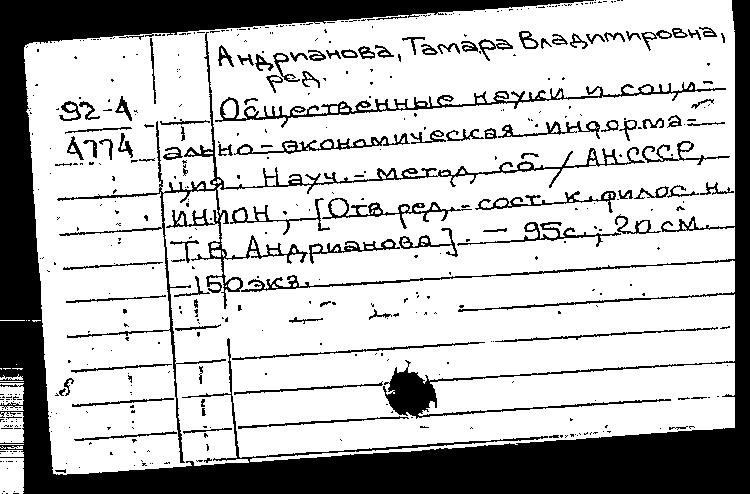 Андрианова, Тамара Владимировна,
ред.
92-4
4774
Общественные науки и соци-
ально-экономическая информа-
ция: Науч.-метод. сб. / АН СССР,
ИНИОН; [Отв. ред.-сост. к. филос. н.
Т.В. Андрианова]. - 95с.; 20 см.
-150экз.